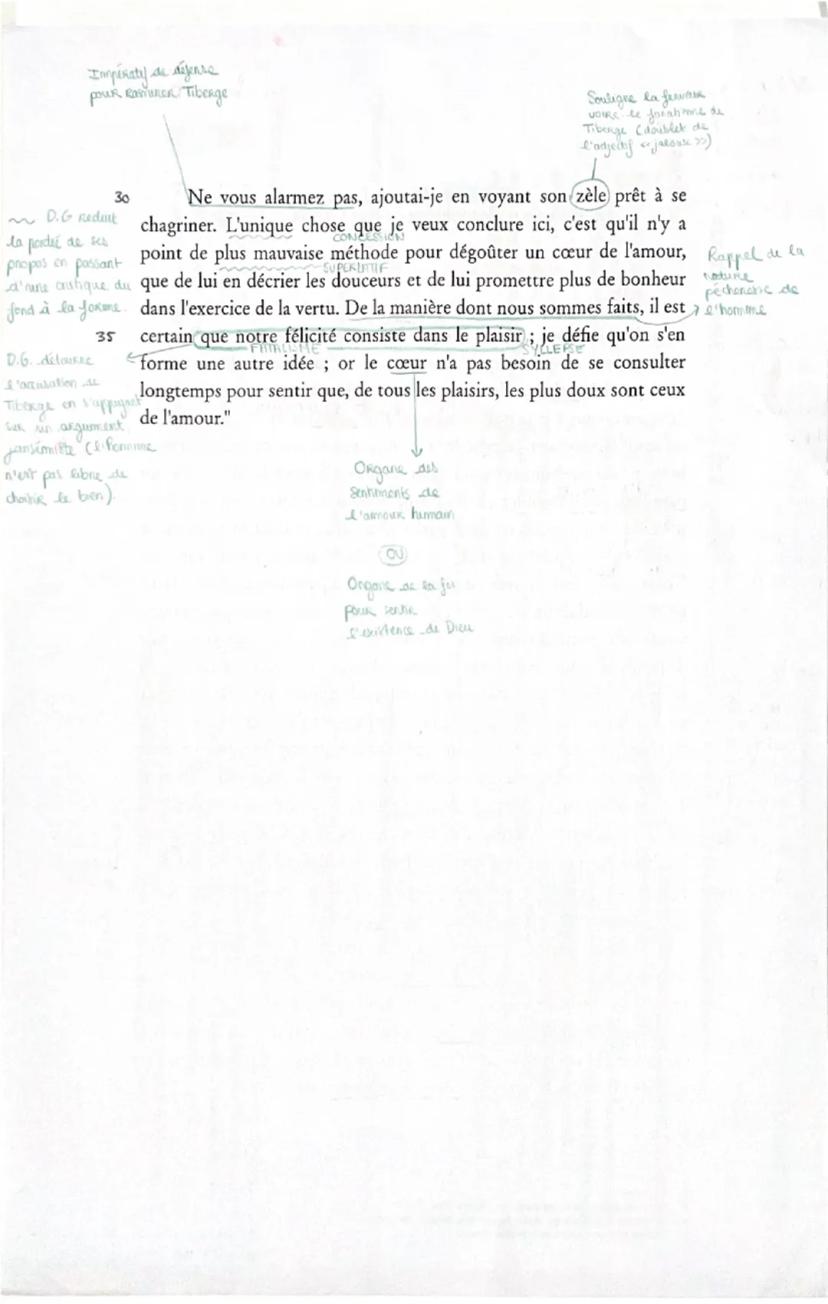 Impératif de défense
pour rassurer Tiberge
Souligne la ferveur
voire le fanatisme de
Tiberge (doublet de
l'adjectif « jalouse »)
30 Ne vous alarmez pas, ajoutai-je en voyant son zèle prêt à se
chagriner. L'unique chose que je veux conclure ici, c'est qu'il n'y a
CONCESSION
point de plus mauvaise méthode pour dégoûter un cœur de l'amour,
SUPERLATIF
que de lui en décrier les douceurs et de lui promettre plus de bonheur
dans l'exercice de la vertu. De la manière dont nous sommes faits, il est
35 certain que notre félicité consiste dans le plaisir ; je défie qu'on s'en
FATALISME
SYLLEPSE
forme une autre idée ; or le cœur n'a pas besoin de se consulter
longtemps pour sentir que, de tous les plaisirs, les plus doux sont ceux
de l'amour."
D.G réduit
la portée de ses
propos en passant
d'une critique du
fond à la forme.
D.G. détourne
l'accusation de
Tiberge en s'appuyant
sur un argument
janséniste (l'homme
n'est pas libre de
choisir le bien).
Rappel de la
nature
pécheresse de
l'homme
Organe des
sentiments de
l'amour humain
OU
Organe de la foi
pour sentir
l'existence de Dieu